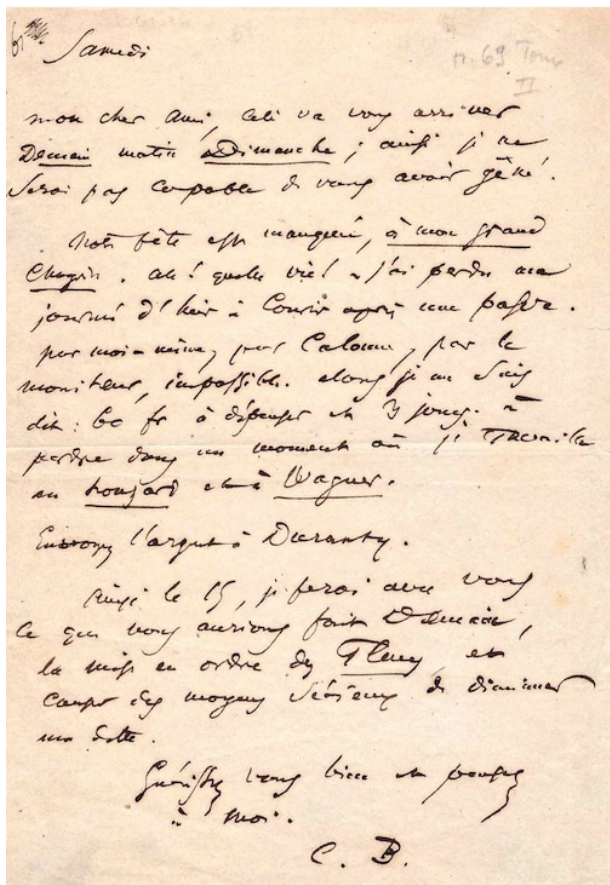 Samedi
n. 69 Tome
II
mon cher ami, ceci va vous arriver
Demain matin Dimanche ; ainsi je ne
serai pas coupable de vous avoir gêné.
Notre fête est manquée, à mon grand
chagrin. ah ! quelle vie ! – j'ai perdu ma
journée d'hier à courir après une passe.
par moi-même, par Calonne, par le
moniteur, impossible. alors je me suis
dit : 60 fr à dépenser et 3 jours à
perdre dans un moment où je travaille
au et à Wagner.
Envoyons l'argent à Duranty.
Ainsi le 15, je ferai avec vous
ce que nous aurions fait Demain,
la mise en ordre des Fleurs, et
causer des moyens sérieux de diminuer
ma dette.
Guérissez vous bien et pensez
à moi.
C. B.